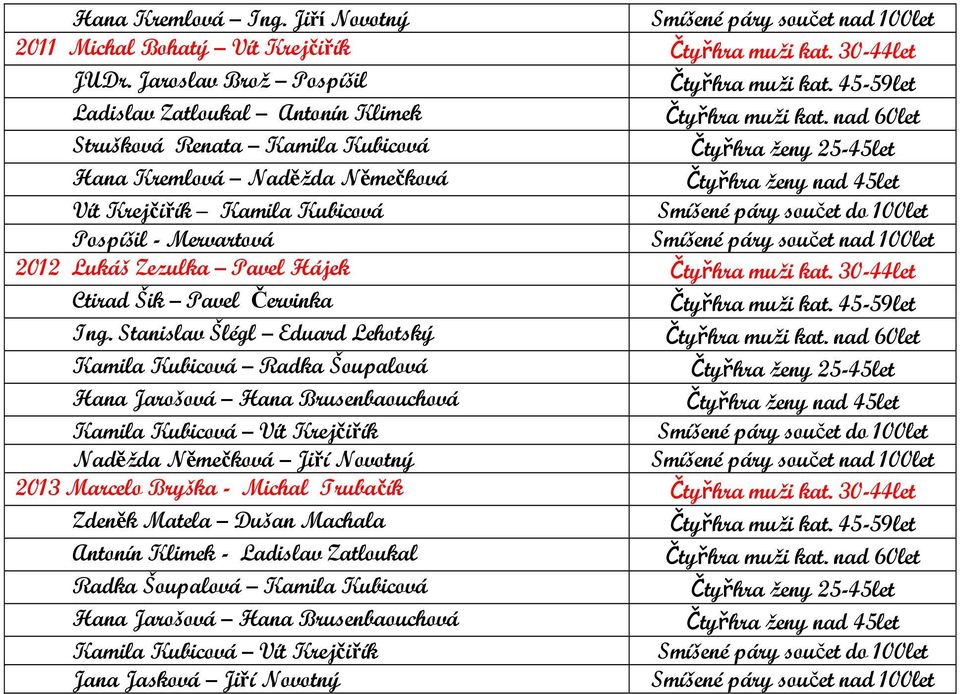 Hana Kremlová – Ing. Jiří Novotný Smíšené páry součet nad 100let
2011 Michal Bohatý – Vít Krejčiřík Čtyřhra muži kat. 30-44let
JUDr. Jaroslav Brož – Pospíšil Čtyřhra muži kat. 45-59let
Ladislav Zatloukal – Antonín Klimek Čtyřhra muži kat. nad 60let
Strušková Renata – Kamila Kubicová Čtyřhra ženy 25-45let
Hana Kremlová – Naděžda Němečková Čtyřhra ženy nad 45let
Vít Krejčiřík – Kamila Kubicová Smíšené páry součet do 100let
Pospíšil - Mervartová Smíšené páry součet nad 100let
2012 Lukáš Zezulka – Pavel Hájek Čtyřhra muži kat. 30-44let
Ctirad Šik – Pavel Červinka Čtyřhra muži kat. 45-59let
Ing. Stanislav Šlégl – Eduard Lehotský Čtyřhra muži kat. nad 60let
Kamila Kubicová – Radka Šoupalová Čtyřhra ženy 25-45let
Hana Jarošová – Hana Brusenbaouchová Čtyřhra ženy nad 45let
Kamila Kubicová – Vít Krejčiřík Smíšené páry součet do 100let
Naděžda Němečková – Jiří Novotný Smíšené páry součet nad 100let
2013 Marcelo Bryška - Michal Trubačík Čtyřhra muži kat. 30-44let
Zdeněk Matela – Dušan Machala Čtyřhra muži kat. 45-59let
Antonín Klimek - Ladislav Zatloukal Čtyřhra muži kat. nad 60let
Radka Šoupalová – Kamila Kubicová Čtyřhra ženy 25-45let
Hana Jarošová – Hana Brusenbaouchová Čtyřhra ženy nad 45let
Kamila Kubicová – Vít Krejčiřík Smíšené páry součet do 100let
Jana Jasková – Jiří Novotný Smíšené páry součet nad 100let